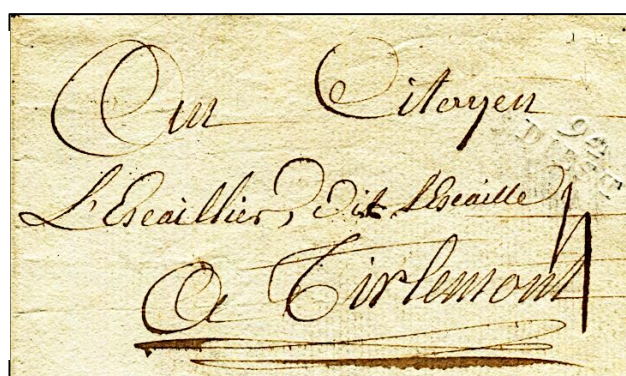 Au Citoyen
94
DIEST
L'Escaillier, dit L'Escaille
A Tirlemont